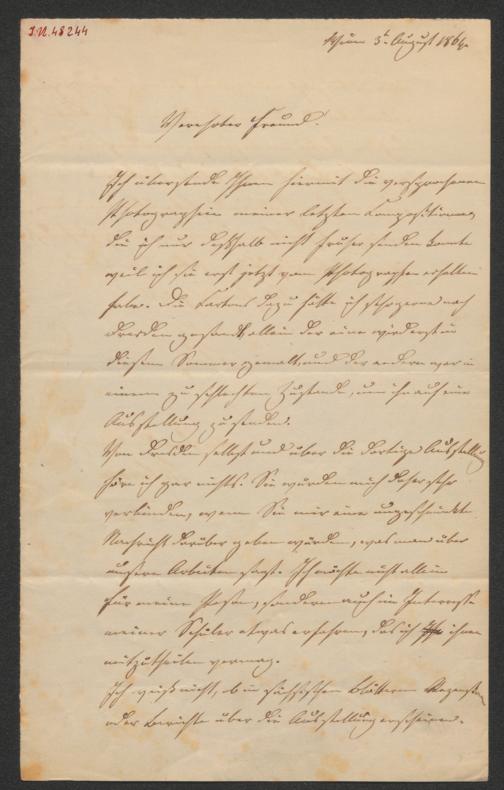 I.N. 48244
Wien 3t August 1864.
Verehrter Freund!
Ich übersende Ihnen hiermit die versprochenen
Photographien meiner letzten Compositionen,
die ich nur deßhalb nicht früher senden konnte
weil ich sie erst jetzt vom Photographen erhalten
habe. Die Cartons dazu hätte ich sehr gerne nach
Dresden gesandt, allein der eine wird erst in
diesem Sommer gemalt, und der andere war in
einem zu schlechten Zustande, um ihn auf eine
Ausstellung zu senden.
Von Dresden selbst und über die dortige Ausstellung
höre ich gar nichts. Sie würden mich daher sehr
verbinden, wenn Sie mir eine ungeschminkte
Nachricht darüber geben würden, was man über
unsere Arbeiten sagt. Ich möchte nicht allein
für meine Person, sondern auch im Interesse
meiner Schüler etwas erfahren, das ich ihnen
mitzutheilen vermag.
Ich weiß nicht, ob in sächsischen Blättern Rezensionen
oder Berichte über die Ausstellung erscheinen.